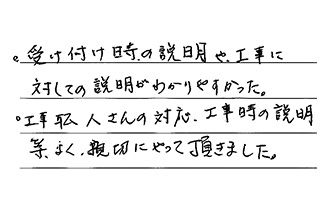 。受け付け時の説明や、工事に
対しての説明がわかりやすかった。
。工事職人さんの対応、工事時の説明
等よく、親切にやって頂きました。